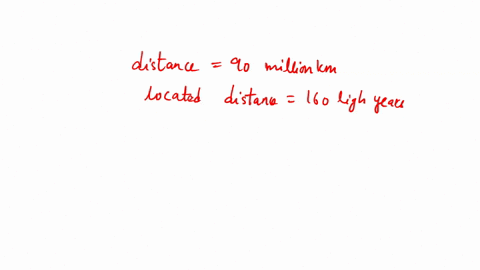 distance = 90 million km
located distance = 160 ligh years